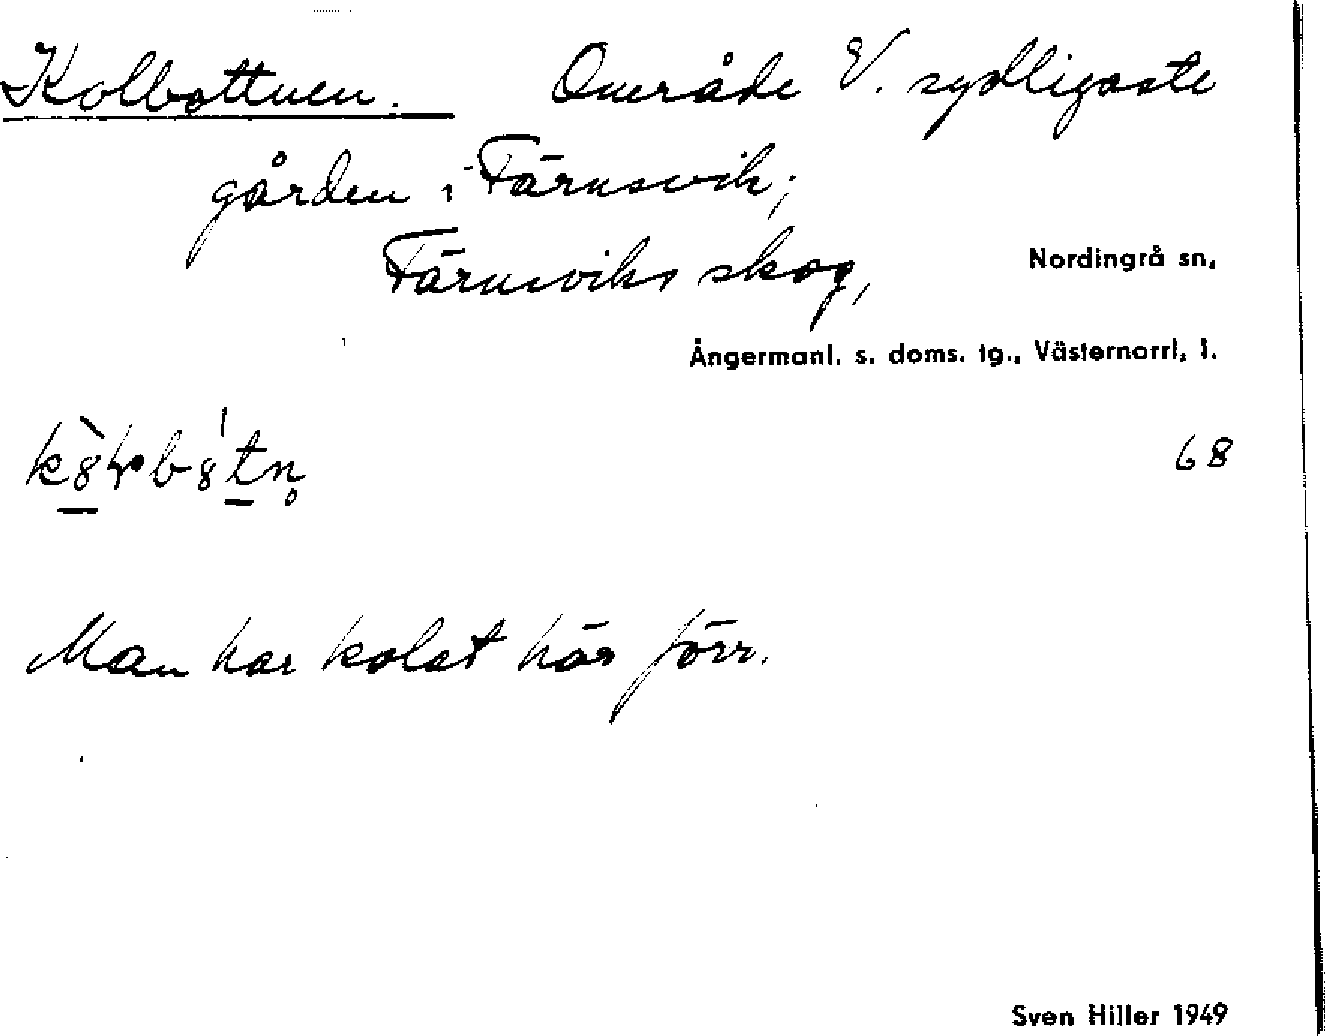 Kolbottnen. Område V. sydligaste
gården i Färnsvik;
Färnsviks skog,
Nordingrå sn,
Ångermanl. s. doms. tg., Västernorrl. l.
68
Man har kolat här förr.
Sven Hiller 1949